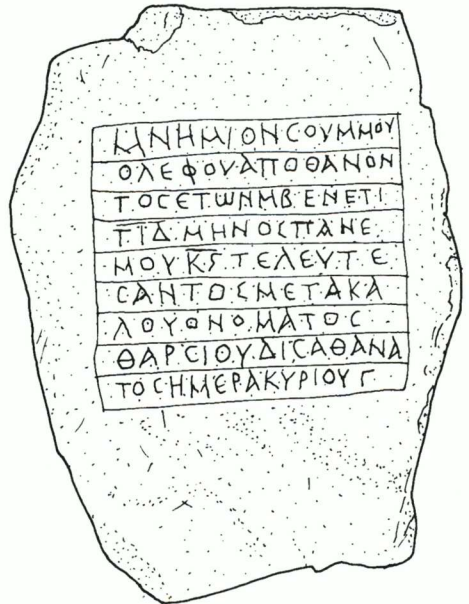 ΜΝΗΜΙΟΝCΟΥΜΜΟΥ
ΟΛΕΦΟΥΑΠΟΘΑΝΟΝ
ΤΟCΕΤΩΝΜΒΕΝΕΤΙ
ΤΙΔΜΗΝΟCΠΑΝΕ
ΜΟΥΚϚΤΕΛΕΥΤΕ
CΑΝΤΟCΜΕΤΑΚΑ
ΛΟΥΟΝΟΜΑΤΟC
ΘΑΡCΙΟΥΔΙCΑΘΑΝΑ
ΤΟCΗΜΕΡΑΚΥΡΙΟΥΓ